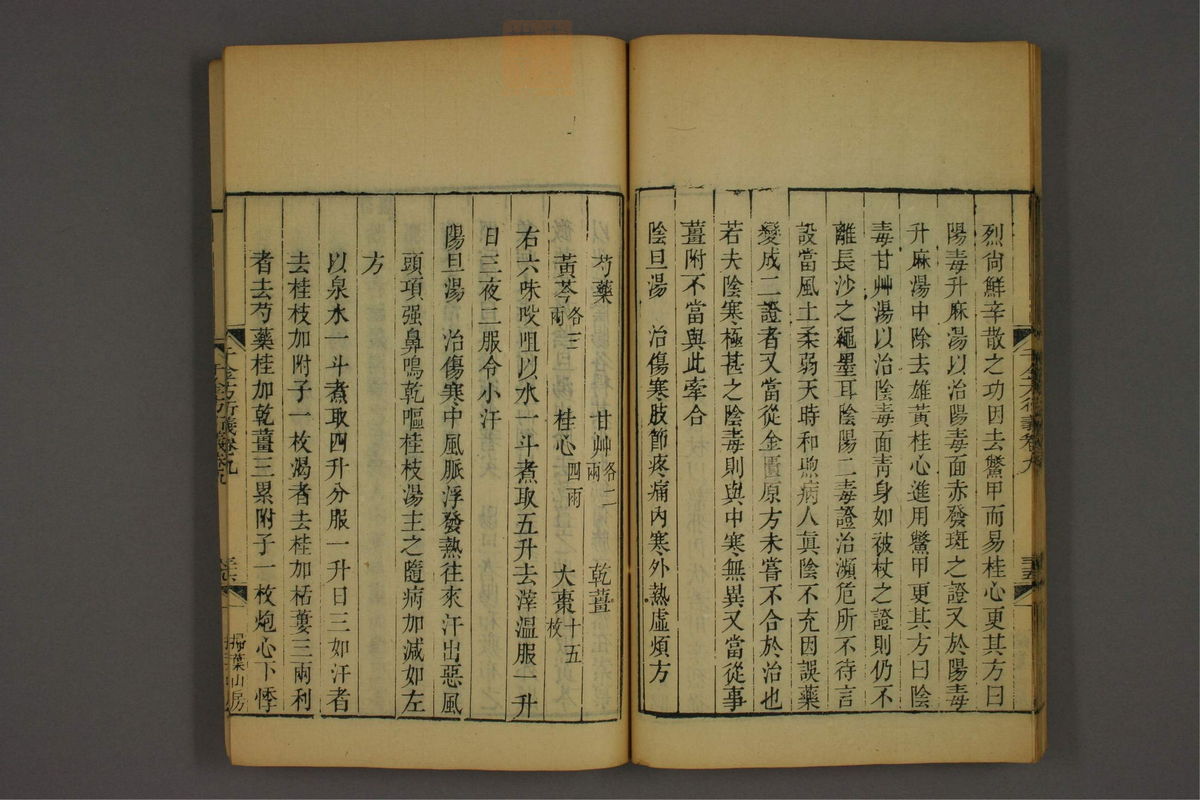 烈尙鮮辛散之功因去鱉甲而易桂心更其方曰
陽毒升麻湯以治陽毒面赤發斑之證又於陽毒
升麻湯中除去雄黃桂心進用鱉甲更其方曰陰
毒甘艸湯以治陰毒面靑身如被杖之證則仍不
離長沙之繩墨耳陰陽二毒證治瀕危所不待言
設當風土柔弱天時和煦病人眞陰不充因誤藥
變成二證者又當從金匱原方未嘗不合於治也
若夫陰寒極甚之陰毒則與中寒無異又當從事
薑附不當與此牽合
陰旦湯　治傷寒肢節疼痛內寒外熱虛煩方
芍藥　甘艸各二兩　乾薑
黃芩各三兩　桂心四兩　大棗十五枚
右六味㕮咀以水一斗煮取五升去滓溫服一升
日三夜二服令小汗
陽旦湯　治傷寒中風脈浮發熱往來汗出惡風
頭項强鼻鳴乾嘔桂枝湯主之隨病加減如左
方
以泉水一斗煮取四升分服一升日三如汗者
去桂枝加附子一枚渴者去桂加栝蔞三兩利
者去芍藥桂加乾薑三累附子一枚炮心下悸
千金方衍義卷九
掃葉山房